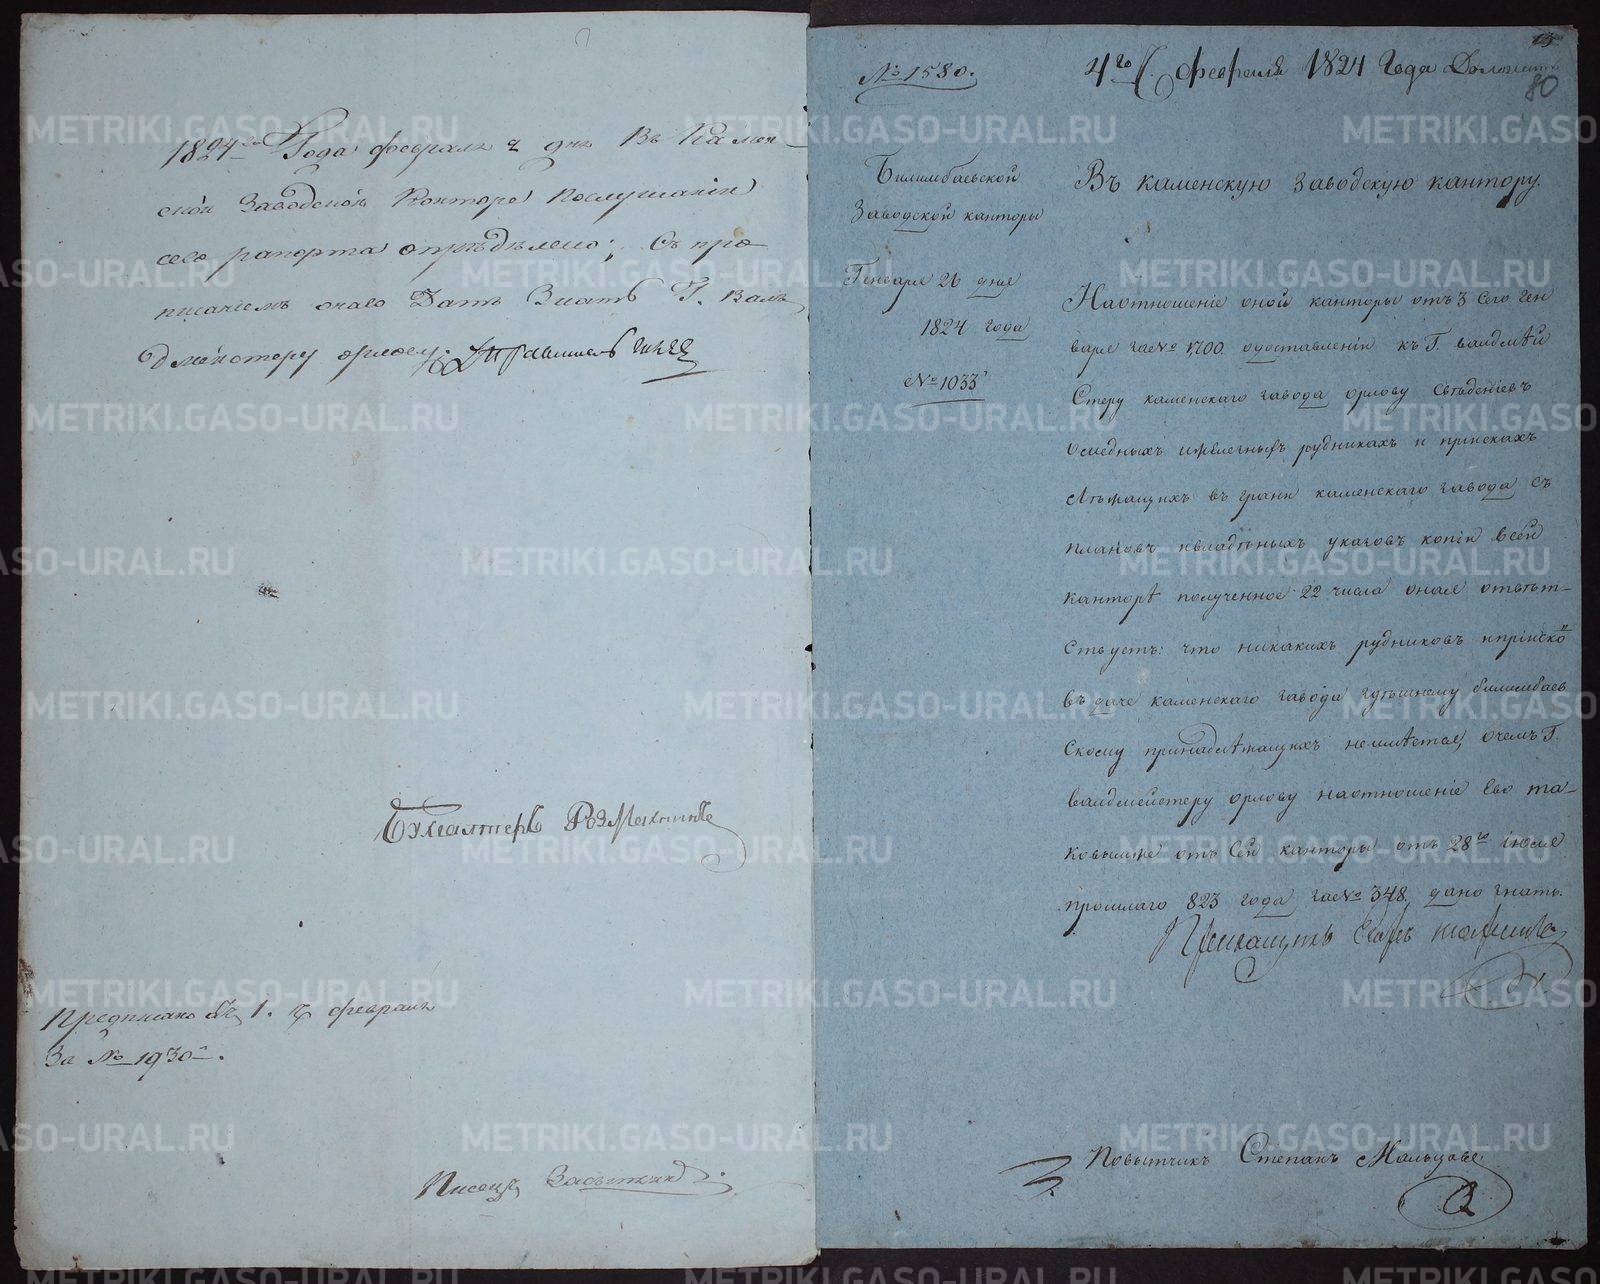 1824го Года февраля 2 дня Въ Камен-
ской Заводской Конторе Послушании
сего рапорта опредѣлено; Съ про
писаниемъ онаго Дать Знать Г. Валь
дмейстеру орлову.
Бухгалтеръ
Предписано 1. февраля
За № 1930.
Писецъ
№ 1580.
4го февраля 1824 Года
80
Билимбаевской
Заводской канторы
Генваря 26 дня
1824 года
№ 1033
Въ каменскую заводскую кантору.
Наотношенiе оной канторы отъ 3 Сего ген
варя за № 1700. одоставленiи къ Г. валдмѣй
Стеру каменскаго завода орлову Свѣденiевъ
Омедныхъ ижелезныхъ рудникахъ и прiискахъ
лѣжащихъ въ грани каменскаго завода съ
плановъ ивладѣнныхъ указовъ копiи всей
канторѣ полученное 22 числа оная отвѣт-
Ствуетъ: что никакихъ рудниковъ ипрiиско
въ даче каменскаго завода здѣшнему билимбаев
Скому принадлѣжащихъ неимѣется, очемъ Г.
валдмейстеру орлову наотношенiе Ево та-
ковыяже отъ Сей канторы отъ 28го iюля
прошлаго 823 года за № 348. дано знать.
Повытчикъ Степанъ Мальцовъ
METRIKI.GASO-URAL.RU